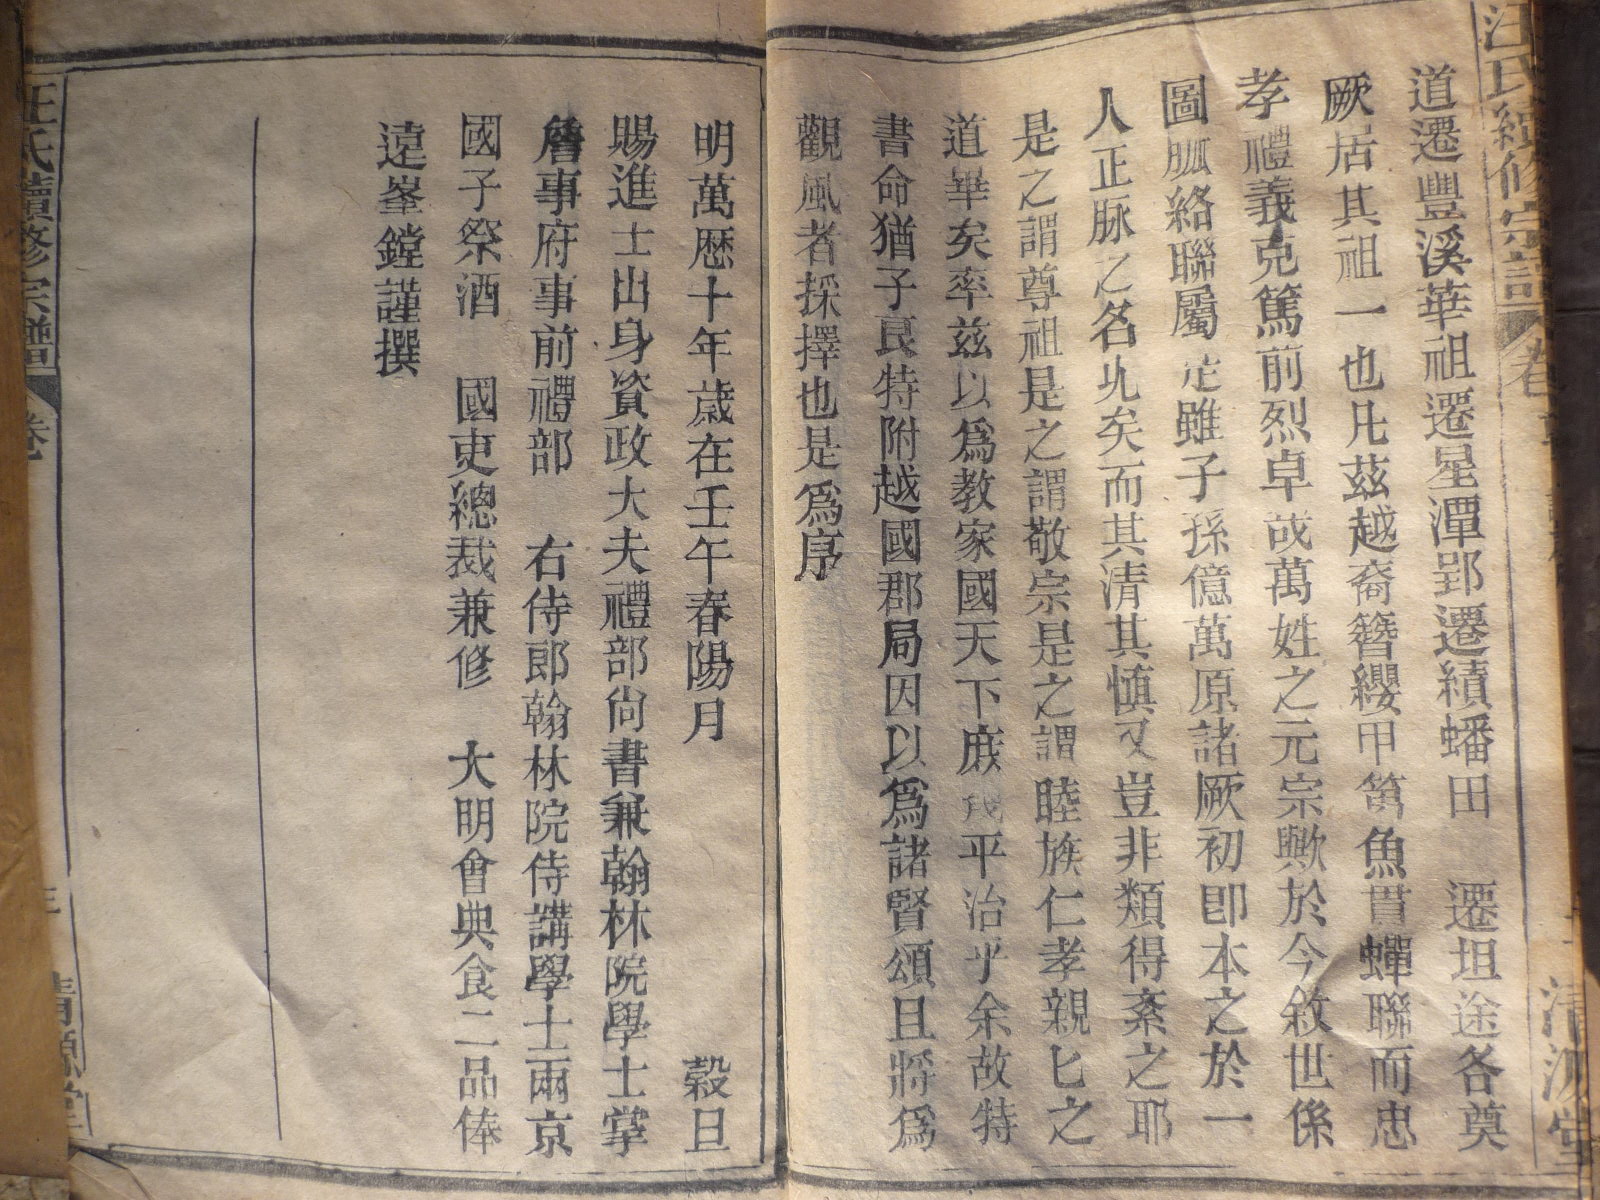 汪氏續修宗譜
卷
清源堂
道遷豐溪華祖遷星潭郢遷績蟠田 遷坦途各奠
厥居其祖一也凡茲越裔簪纓甲第魚貫蟬聯而忠
孝禮義克篤前烈卓哉萬姓之元宗歟於今敘世係
圖脈絡聯屬定雖子孫億萬原諸厥初卽本之於一
人正脉之名九矣而其清其慎又豈非類得紊之耶
是之謂尊祖是之謂敬宗是之謂睦族仁孝親匕之
道畢矣率茲以爲教家國天下庶幾平治乎余故特
書命猶子艮特附越國郡局因以爲諸賢頌且將爲
觀風者採擇也是爲序
明萬歷十年歲在壬午春陽月 穀旦
賜進士出身資政大夫禮部尙書兼翰林院學士掌
詹事府事前禮部 右侍郎翰林院侍講學士兩京
國子祭酒 國史總裁兼修 大明會典食二品俸
遠峯鏜謹撰
汪氏續修宗譜
卷
三
清源堂